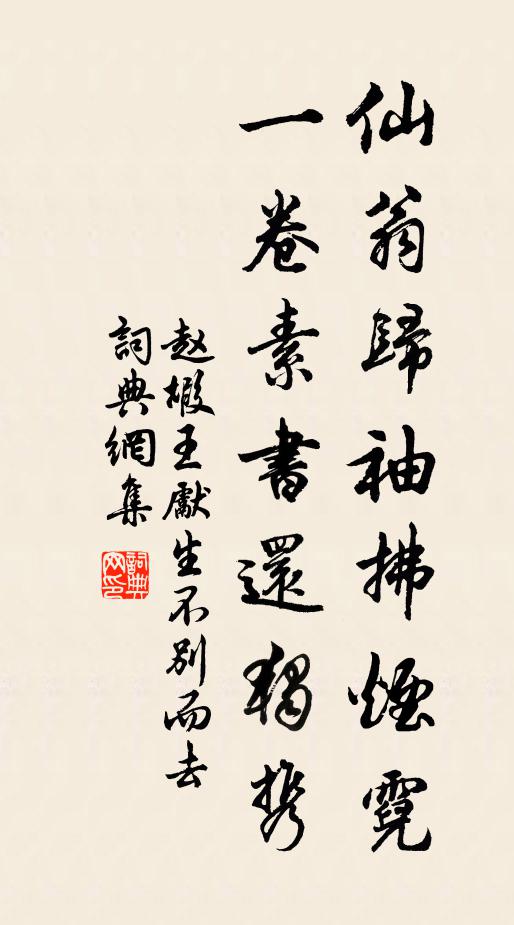 仙翁歸袖拂煙霓
一卷素書還獨携
赵嘏王獻生不別而去
詞典網集
詞典網印